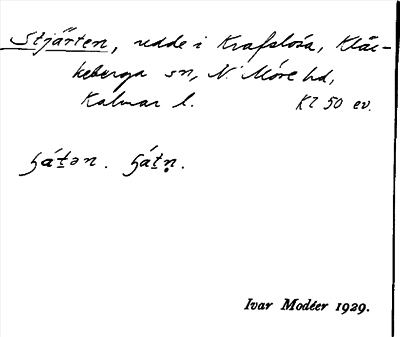 Stjärten, udde i Krafslösa, Kläc-
keberga sn, N. Möre hd,
Kalmar l. Kl 50 ev.
Ivar Modéer 1929.